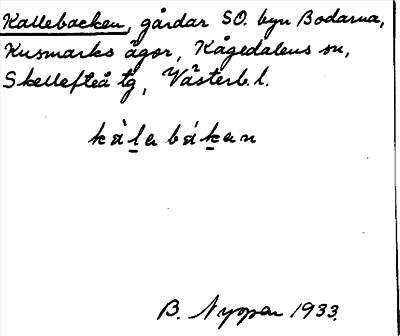 Kallebacken, gårdar SO. byn Bodarna,
Kusmarks ägor, Kågedalens sn,
Skellefteå tg, Västerb. l.
kàlabákan
B. Nyman 1933.